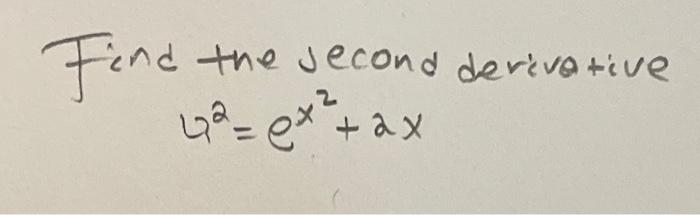 Find the second derivative
y² = e^x² + 2x